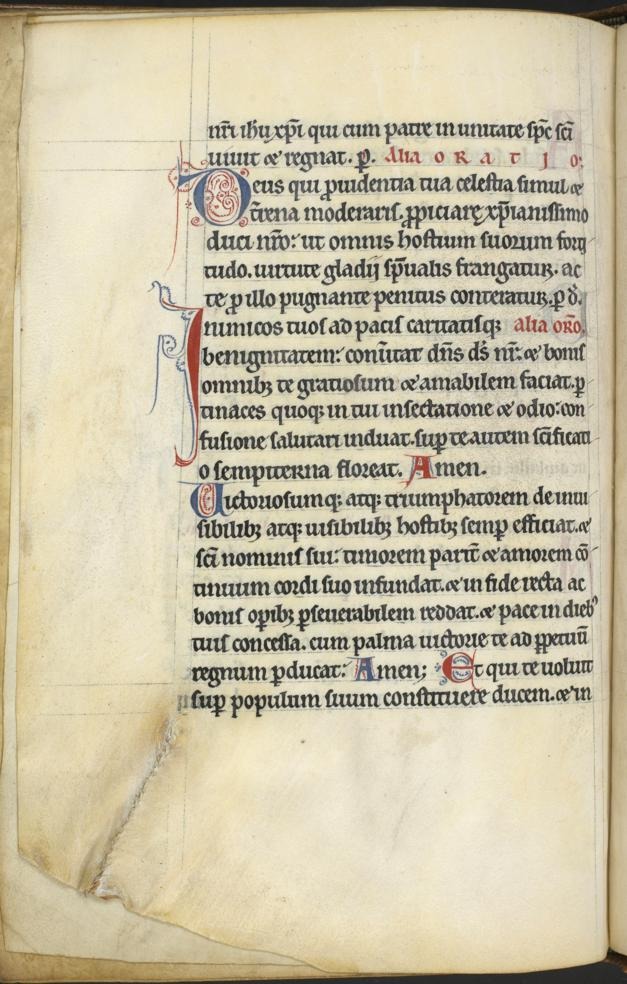 nr̄i ihu xp̄i qui cum patre in unitate sp̄c sc̄i
uiuit &̄ regnat. ꝑ. Alia ORATIO:
Deus qui ꝓuidentia tua celestia simul &
t̄rena moderaris. ꝓpiciare xp̄ianissimo
duci nr̄o: ut omnis hostium suorum forti-
tudo. uirtute gladij sp̄ualis frangatur. ac
te ꝓ illo pugnante penitus conteratur. ꝑ d̄.
Inimicos tuos ad pacis caritatisq; alia or̄o.
benignitatem: conūtat dn̄s ds̄ nr̄: & bonis
omnibꝫ te gratiosum & amabilem faciat. ꝑ-
tinaces quoqꝫ in tui insectatione & odio: con-
fusione salutari induat. suꝑ te autem sc̄ificati
o sempiterna floreat. Amen.
Uictoriosumqꝫ atqꝫ triumphatorem de inui-
sibilibꝫ atqꝫ uisibilibꝫ hostibꝫ semꝑ efficiat. &
sc̄i nominis sui: timorem parit̄ & amorem cō-
tinuum cordi suo infundat. & in fide recta ac
bonis oꝑibꝫ ꝑseuerabilem reddat. & pace in diebꝰ
tuis concessa. cum palma uictorie te ad ꝑpetuū
regnum ꝑducat: Amen; Et qui te uoluit
suꝑ populum suum constituere ducem. & in